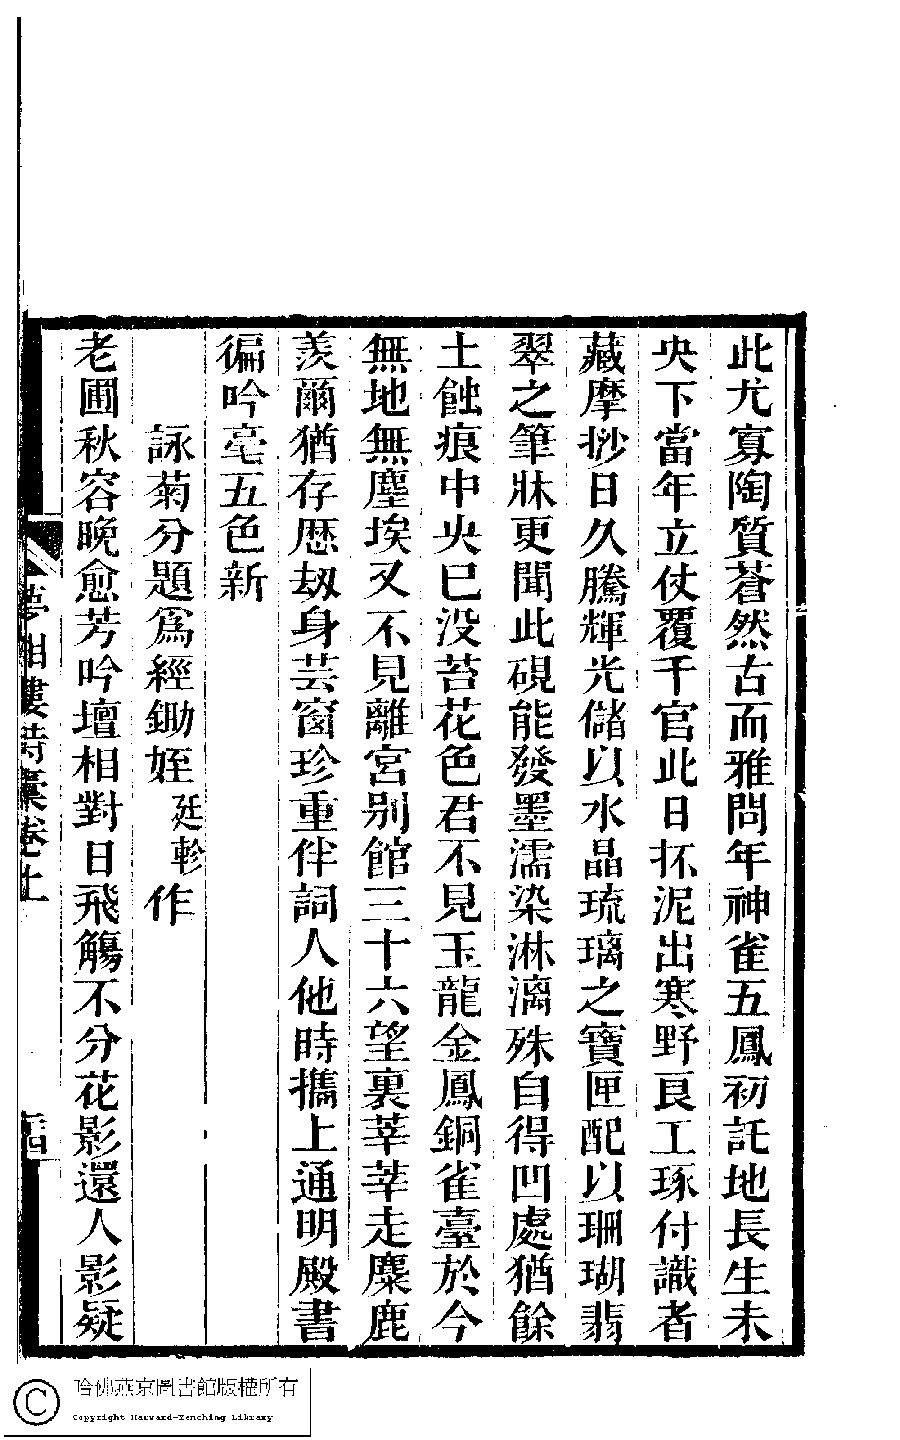 此尤寡陶質蒼然古而雅問年神雀五鳳初託地長生未
央下當年立仗覆千官此日抔泥出寒野良工琢付識者
藏摩挱日久騰輝光儲以水晶琉璃之寶匣配以珊瑚翡
翠之筆牀更聞此硯能發墨濡染淋漓殊自得凹處猶餘
土蝕痕中央巳没苔花色君不見玉龍金鳳銅雀臺於今
無地無塵埃又不見離宮别館三十六望裏莘莘走麋鹿
羨爾猶存歷刼身芸窗珍重伴詞人他時攜上通明殿書
徧吟毫五色新
詠菊分題爲經鋤姪廷軫作
老圃秋容晚愈芳吟壇相對日飛觴不分花影還人影疑
樓詩稾卷上
哈佛燕京圖書館版權所有
Copyright Harvard-Yenching Library